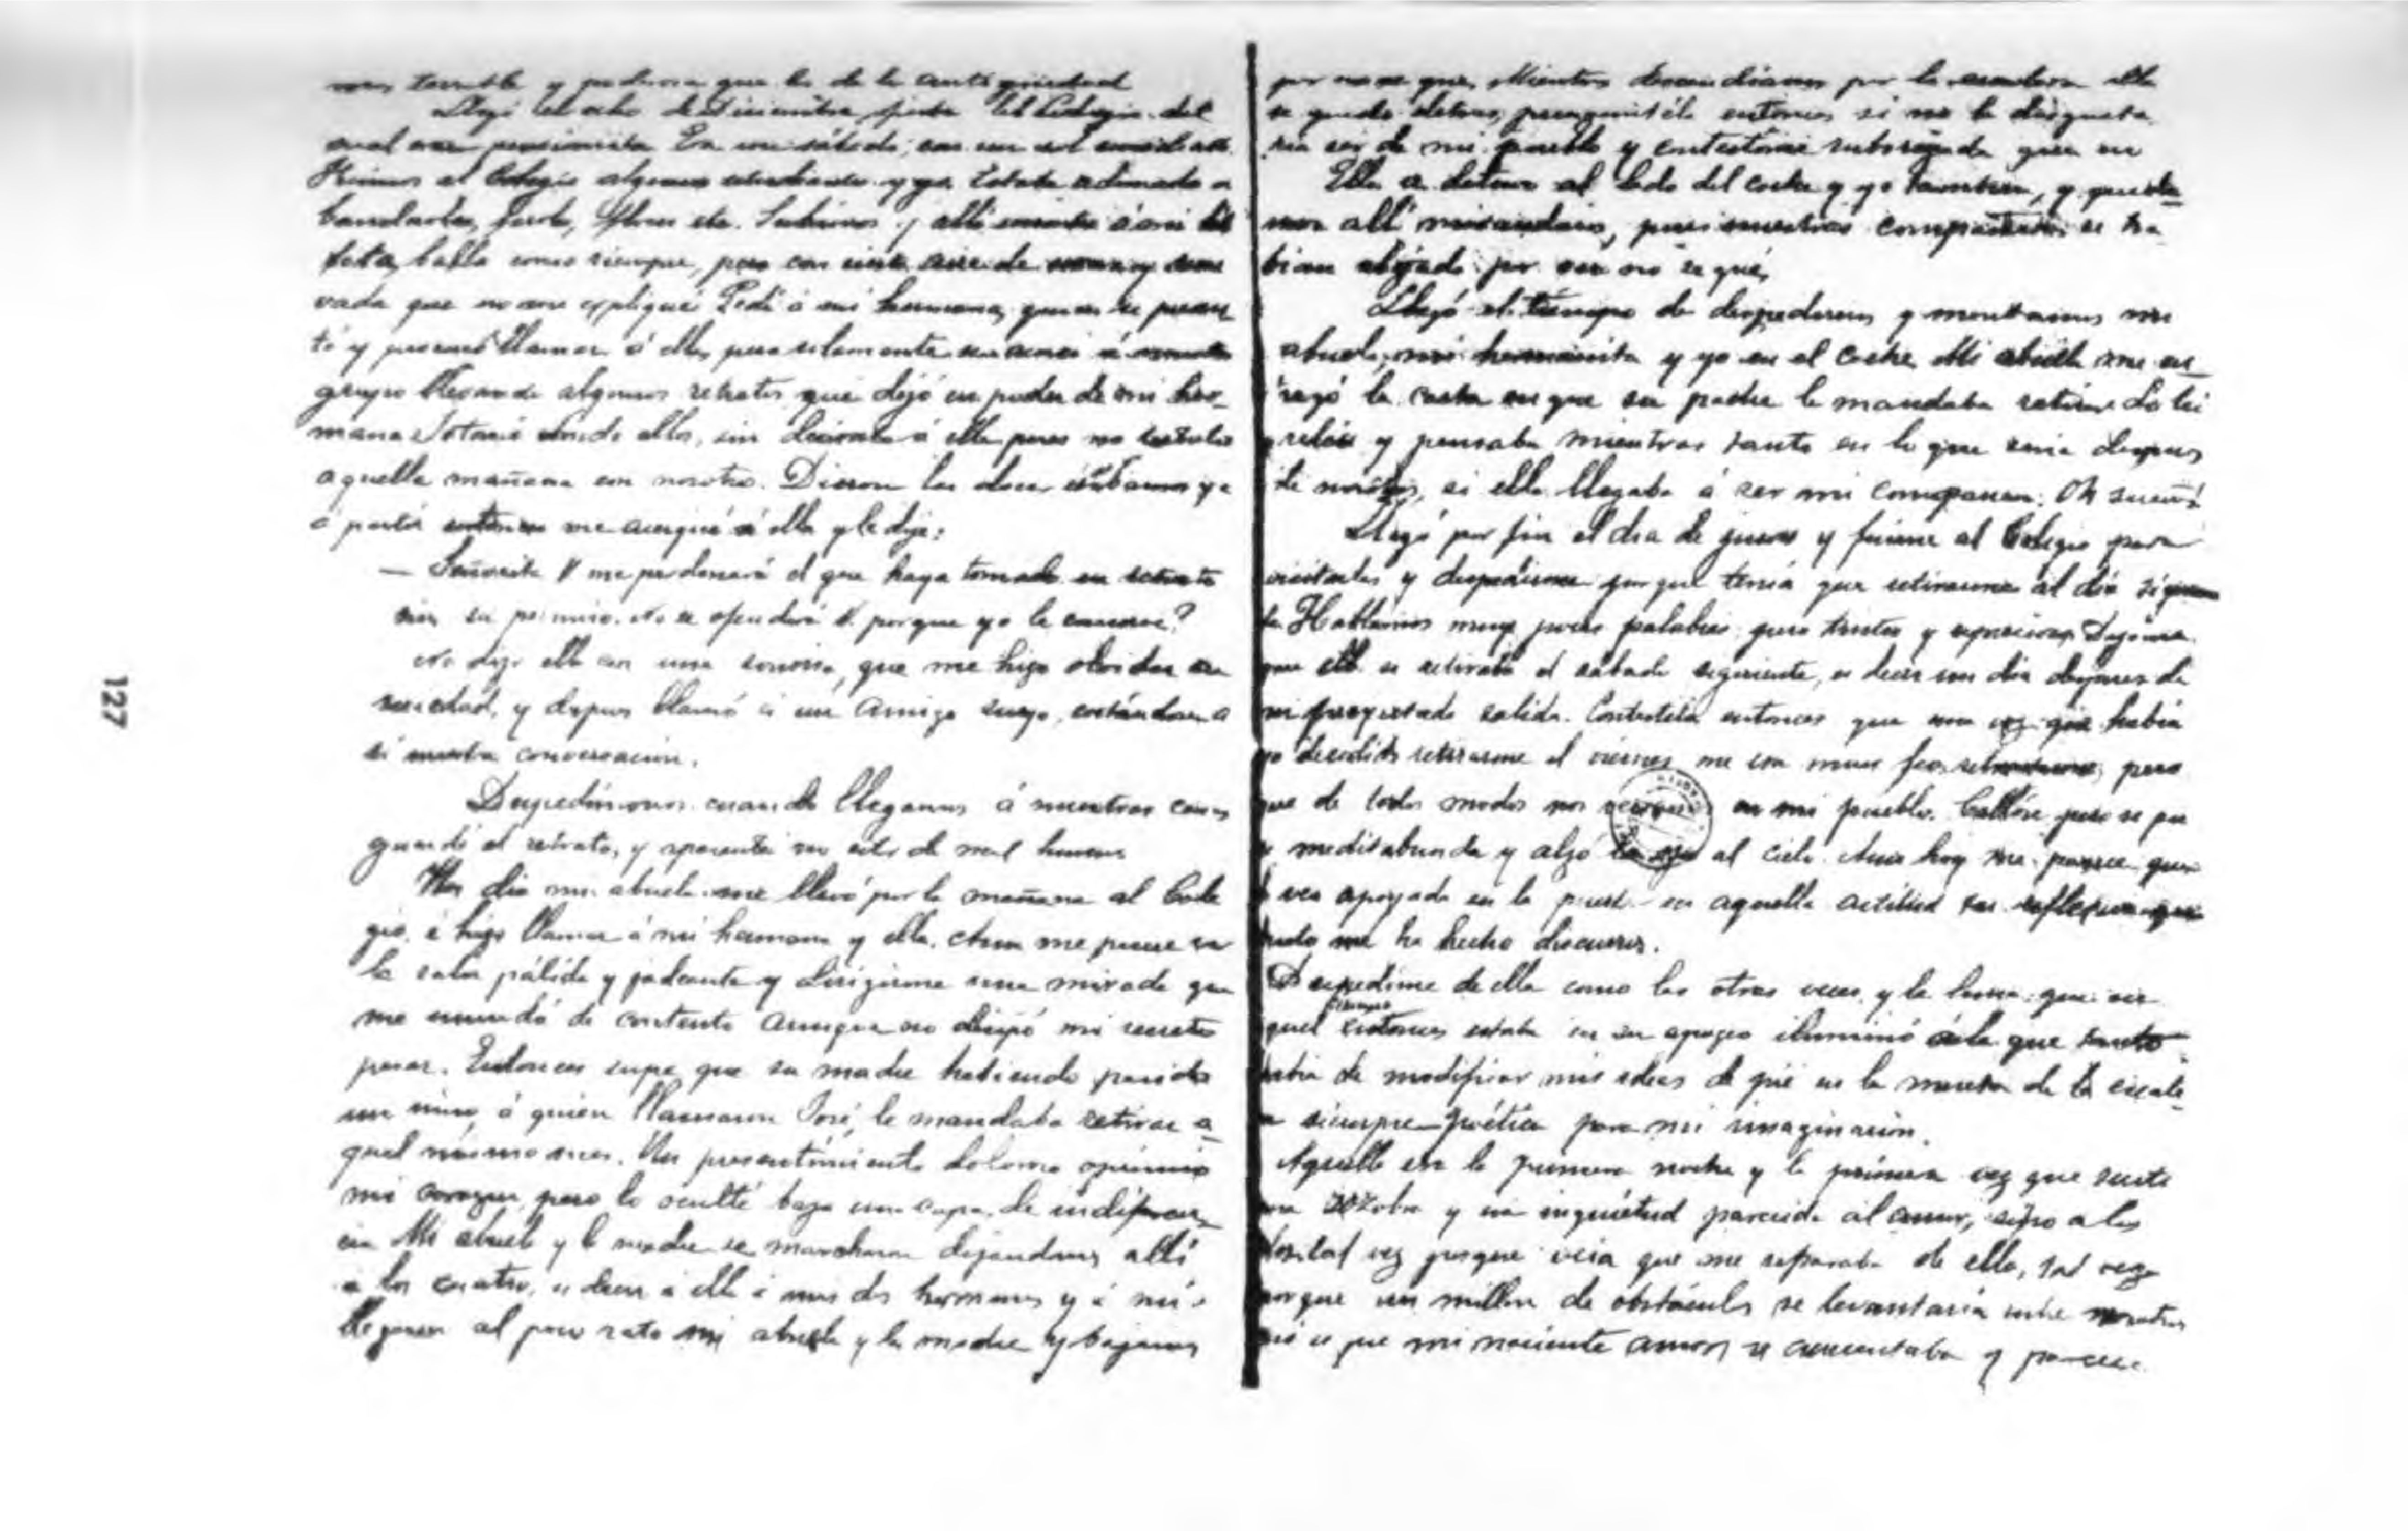 mas terrible y poderosa que la de la antigüedad
Llegó el ocho de Diciembre fiesta del Colegio del
cual era pensionista Era un sábado; con un sol
al Colegio algunos estudiantes y ya estaba adornado
banderas, farolas, flores etc. Subimos y allí
bella como siempre, pero con cierto aire de
que no me expliqué Pedí á mi hermana, quien se presen
tó y llamar á ella, pero solamente se acercó á nuestro
grupo llevando algunos retratos que dejó en poder de mi her-
mana y tomé uno de ellos, sin decírselo á ella pues no estaba
aquella mañana con nosotros. Dieron las doce íbamos ya
á partir entonces me acerqué á ella y le dije:
— Señorita V me perdonará el que haya tomado su retrato
sin su permiso. No se ofenderá V. porque yo le conserve?
No dijo ella con una sonrisa, que me hizo olvidar su
seriedad, y despues llamó á un amigo suyo, cortándose a
si nuestra conversacion.
Despedímonos cuando llegamos á nuestras casas
guardé el retrato, y aparenté no estar de mal humor
Un dia mi abuela me llevó por la mañana al Cole
gio, é hizo llamar á mi hermana y ella. Aun me parece ver
la salir pálida y jadeante y dirigirme una mirada que
me inundó de contento aunque no disipó mi secreto
pesar. Entonces supe que su madre habiendo parido
un niño, á quien llamaron José, le mandaba retirar a-
quel mismo mes. Un presentimiento doloroso oprimió
mi corazon, pero lo oculté bajo una capa de indiferen-
cia Mi abuela y la madre se marcharon dejandonos allí
a los cuatro, es decir á ella á mis dos hermanas y á mí
llegaron al poco rato mi abuela y la madre y bajamos
por no se que. Mientras descendíamos por la escalera ella
se quedó detras; preguntéle entonces si no la disgusta
ría ser de mi pueblo y contestóme que no
Ella se detuvo al lado del coche y yo tambien, y queda-
mos allí mirandonos, pues nuestros compañeros se ha
bian alejado por no se qué,
Llegó el tiempo de despedirnos y montamos mi
abuela, mi hermanita y yo en el coche. Mi abuela me en-
tregó la carta en que su padre le mandaba retirar La leí
y releí y pensaba mientras tanto en lo que sería despues
de nosotros, si ella llegaba á ser mi compañera. Oh sueños!
Llegó por fin el dia de jueves y fuime al Colegio para
visitarlas y despedirme porque tenía que retirarme al día siguien
te. Hablamos muy pocas palabras pero tristes y Dijome
que ella se retiraba el sábado siguiente, es decir un dia despues de
mi proyectada salida. Contestéla entonces que una vez que había
yo decidido retirarme el viernes me era muy feo pero
que de todos modos nos veriamos en mi pueblo. Callóse pero se pu
so meditabunda y alzó los ojos al cielo. Aun hoy me parece que
la veo apoyada en la puerta en aquella actitud tan reflexiva que
tanto me ha hecho discurrir.
Despedime de ella como las otras veces y la luna que en a
quel tiempo entonces estaba en su apogeo iluminó á la que tanto
habia de modificar mis ideas de pié en la meseta de la escale
ra siempre poética para mi imaginacion.
Aquella era la primera noche y la primera vez que sentí
una zozobra y una inquietud parecida al amor, sino a los
celos, tal vez porque veía que me separaba de ella, tal vez
porque un millon de obstáculos se levantaría entre nosotros
así es que mi naciente amor se aumentaba y parece
127